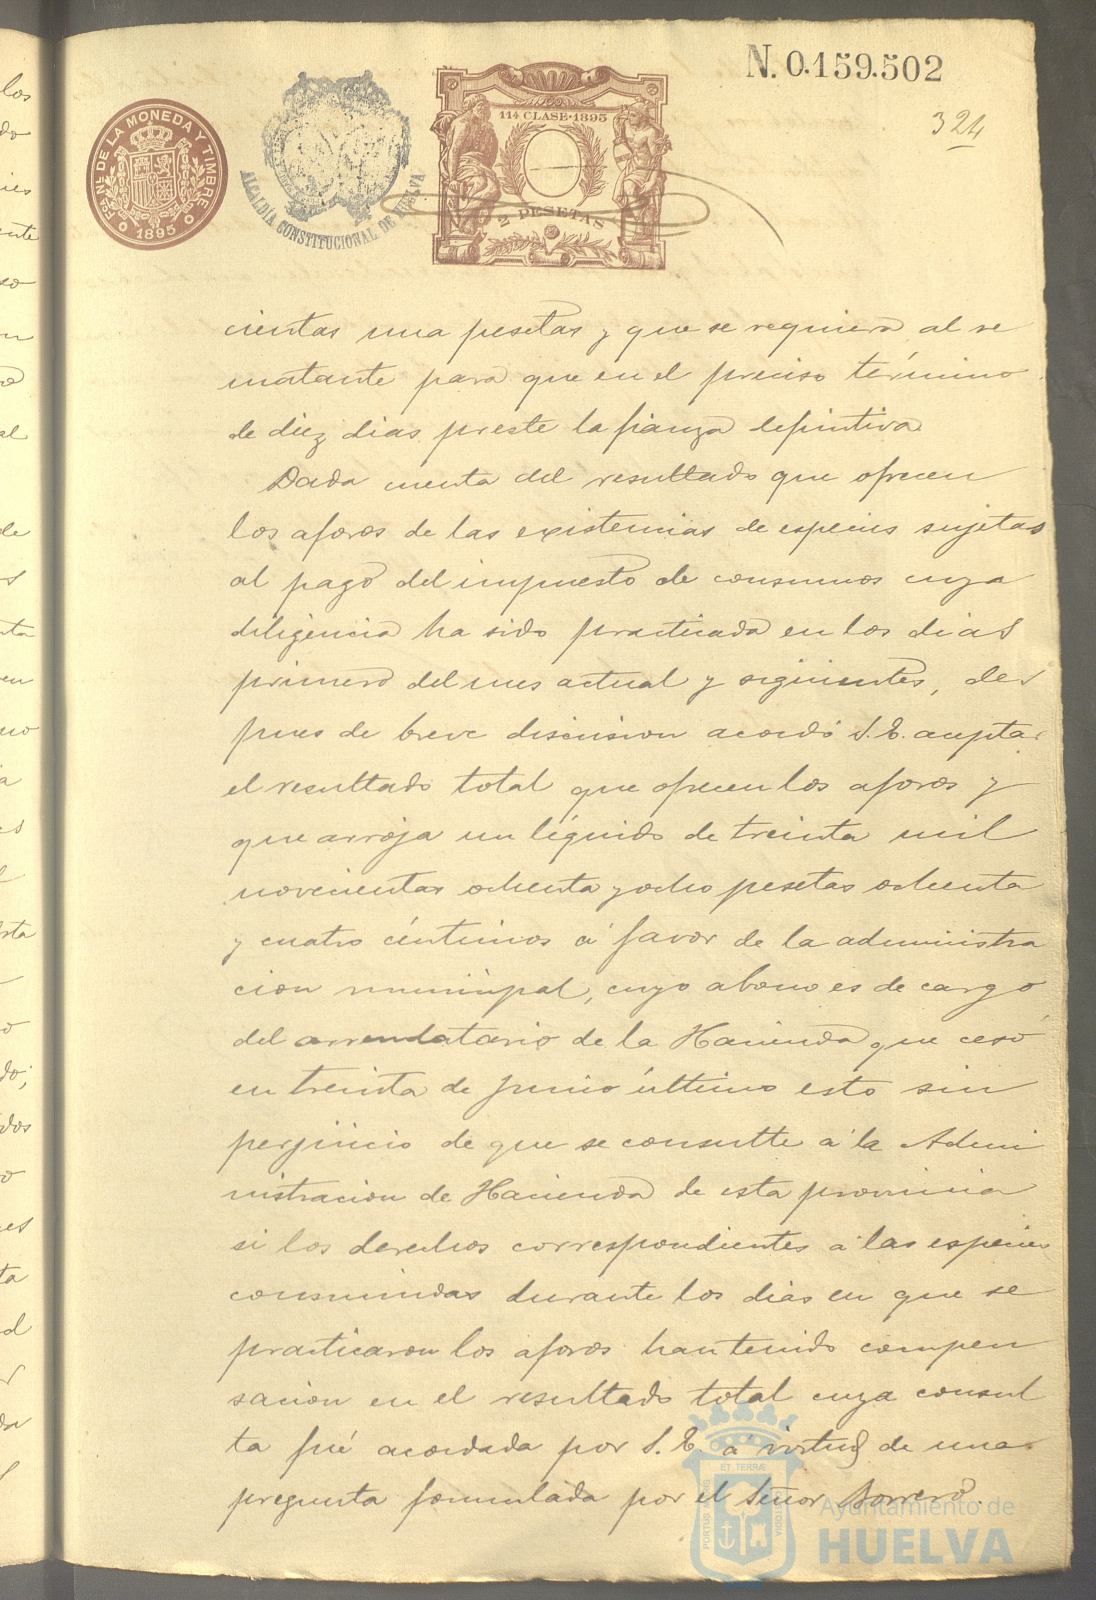 N. 0.159.502
324
FCA. NAL. DE LA MONEDA Y TIMBRE
1895
ALCALDÍA CONSTITUCIONAL DE HUELVA
11ª CLASE·1895
2 PESETAS
cientas una pesetas y que se requiera al re
matante para que en el preciso término
de diez dias preste la fianza definitiva
Dada cuenta del resultado que ofrecen
los aforos de las existencias de especies sujetas
al pago del impuesto de consumos cuya
diligencia ha sido practicada en los dias
primero del mes actual y siguientes, des
pues de breve discusion acordó S. E. aceptar
el resultado total que ofrecen los aforos y
que arroja un líquido de treinta mil
novecientas ochenta y ocho pesetas ochenta
y cuatro céntimos á favor de la administra
cion municipal, cuyo abono es de cargo
del arrendatario de la Hacienda que cesó
en treinta de Junio último esto sin
perjuicio de que se consulte á la Admi
nistracion de Hacienda de esta provincia
si los derechos correspondientes á las especies
consumidas durante los dias en que se
practicaron los aforos han tenido compen
sacion en el resultado total cuya consul
ta fué acordada por S. E. á virtud de una
pregunta formulada por el Señor Borrero.
ET TERRÆ
PORTUS MARIS
CUSTODIA
Ayuntamiento de
HUELVA